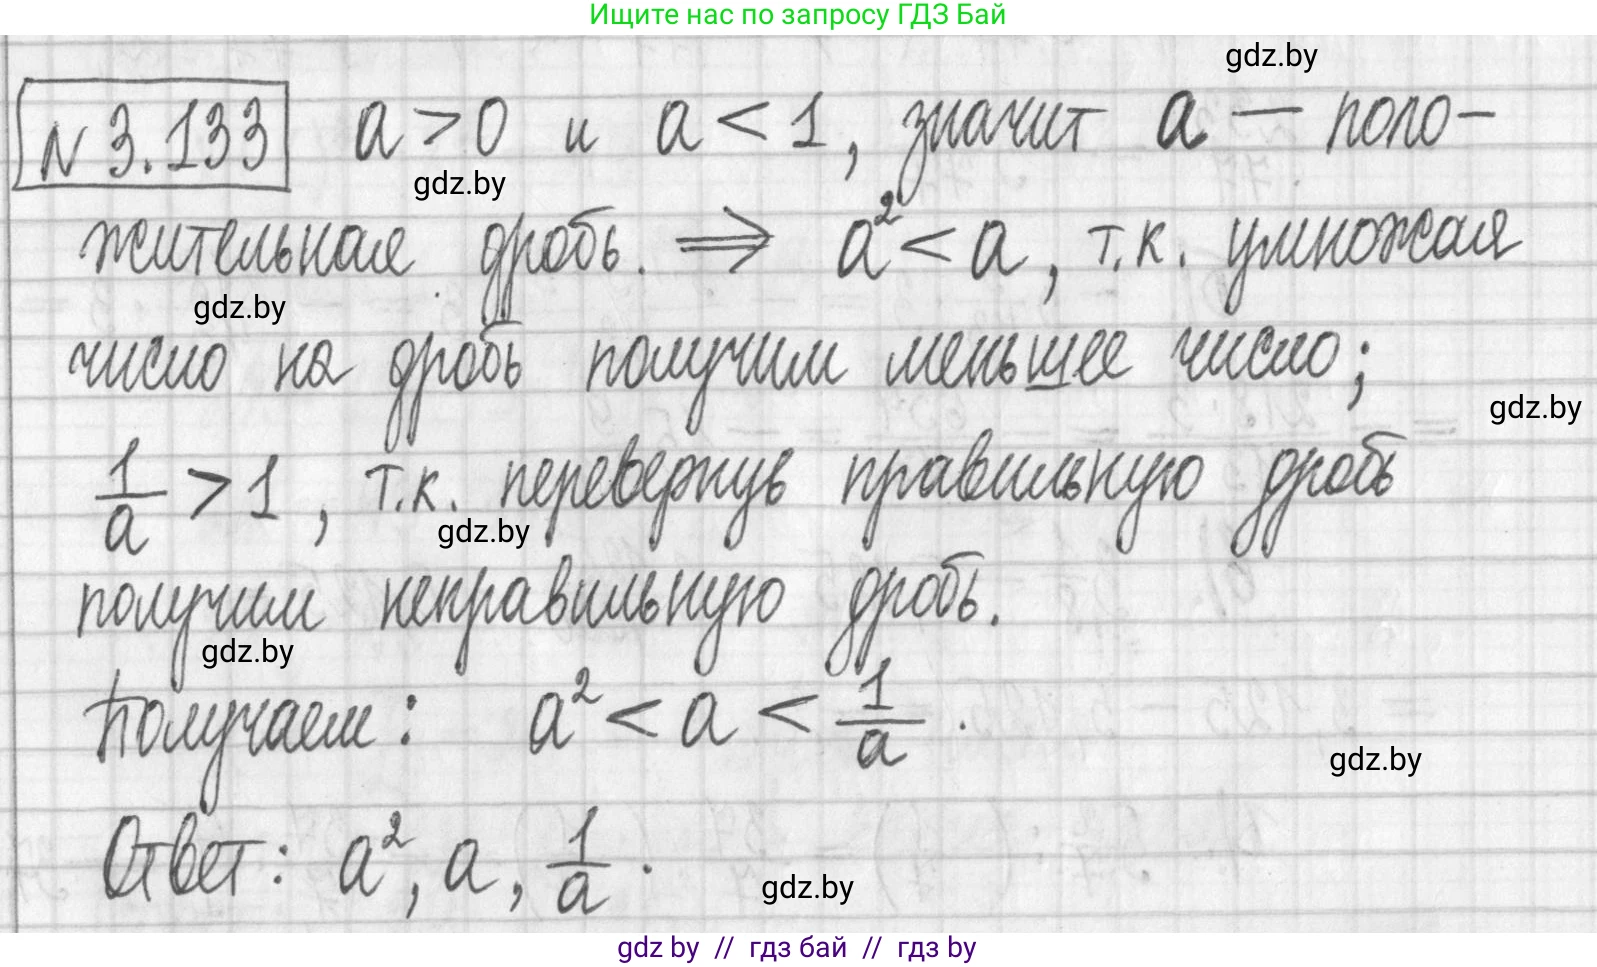 Ищите нас по запросу ГДЗ Бай
gdz.by
N 3.133 a > 0 и a < 1, значит a — поло-
gdz.by
жительная дробь. ⇒ a² < a, т.к. умножая
gdz.by
число на дробь получим меньшее число;
gdz.by
1/a > 1, т.к. перевернув правильную дробь
gdz.by
получим неправильную дробь.
gdz.by
Получаем: a² < a < 1/a.
gdz.by
Ответ: a², a, 1/a.
gdz.by
gdz by // гдз бай // гдз by